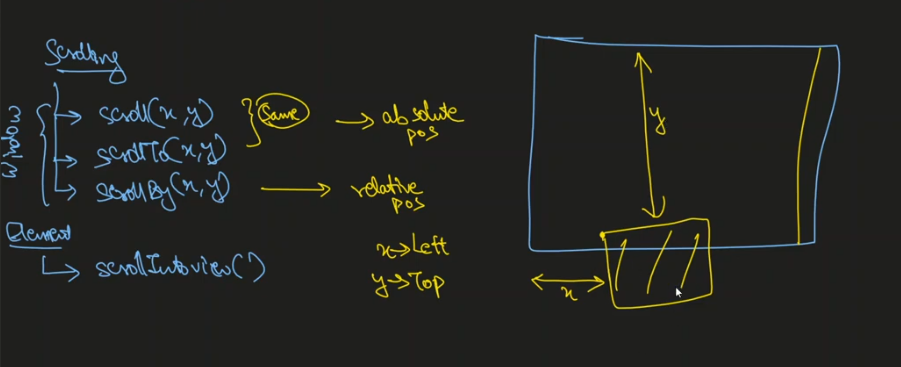 Scrolling
Window
scroll(x,y)
scrollTo(x,y)
scrollBy(x,y)
Same
absolute
pos
relative
pos
Element
scrollIntoview()
x→Left
y→Top
y
x